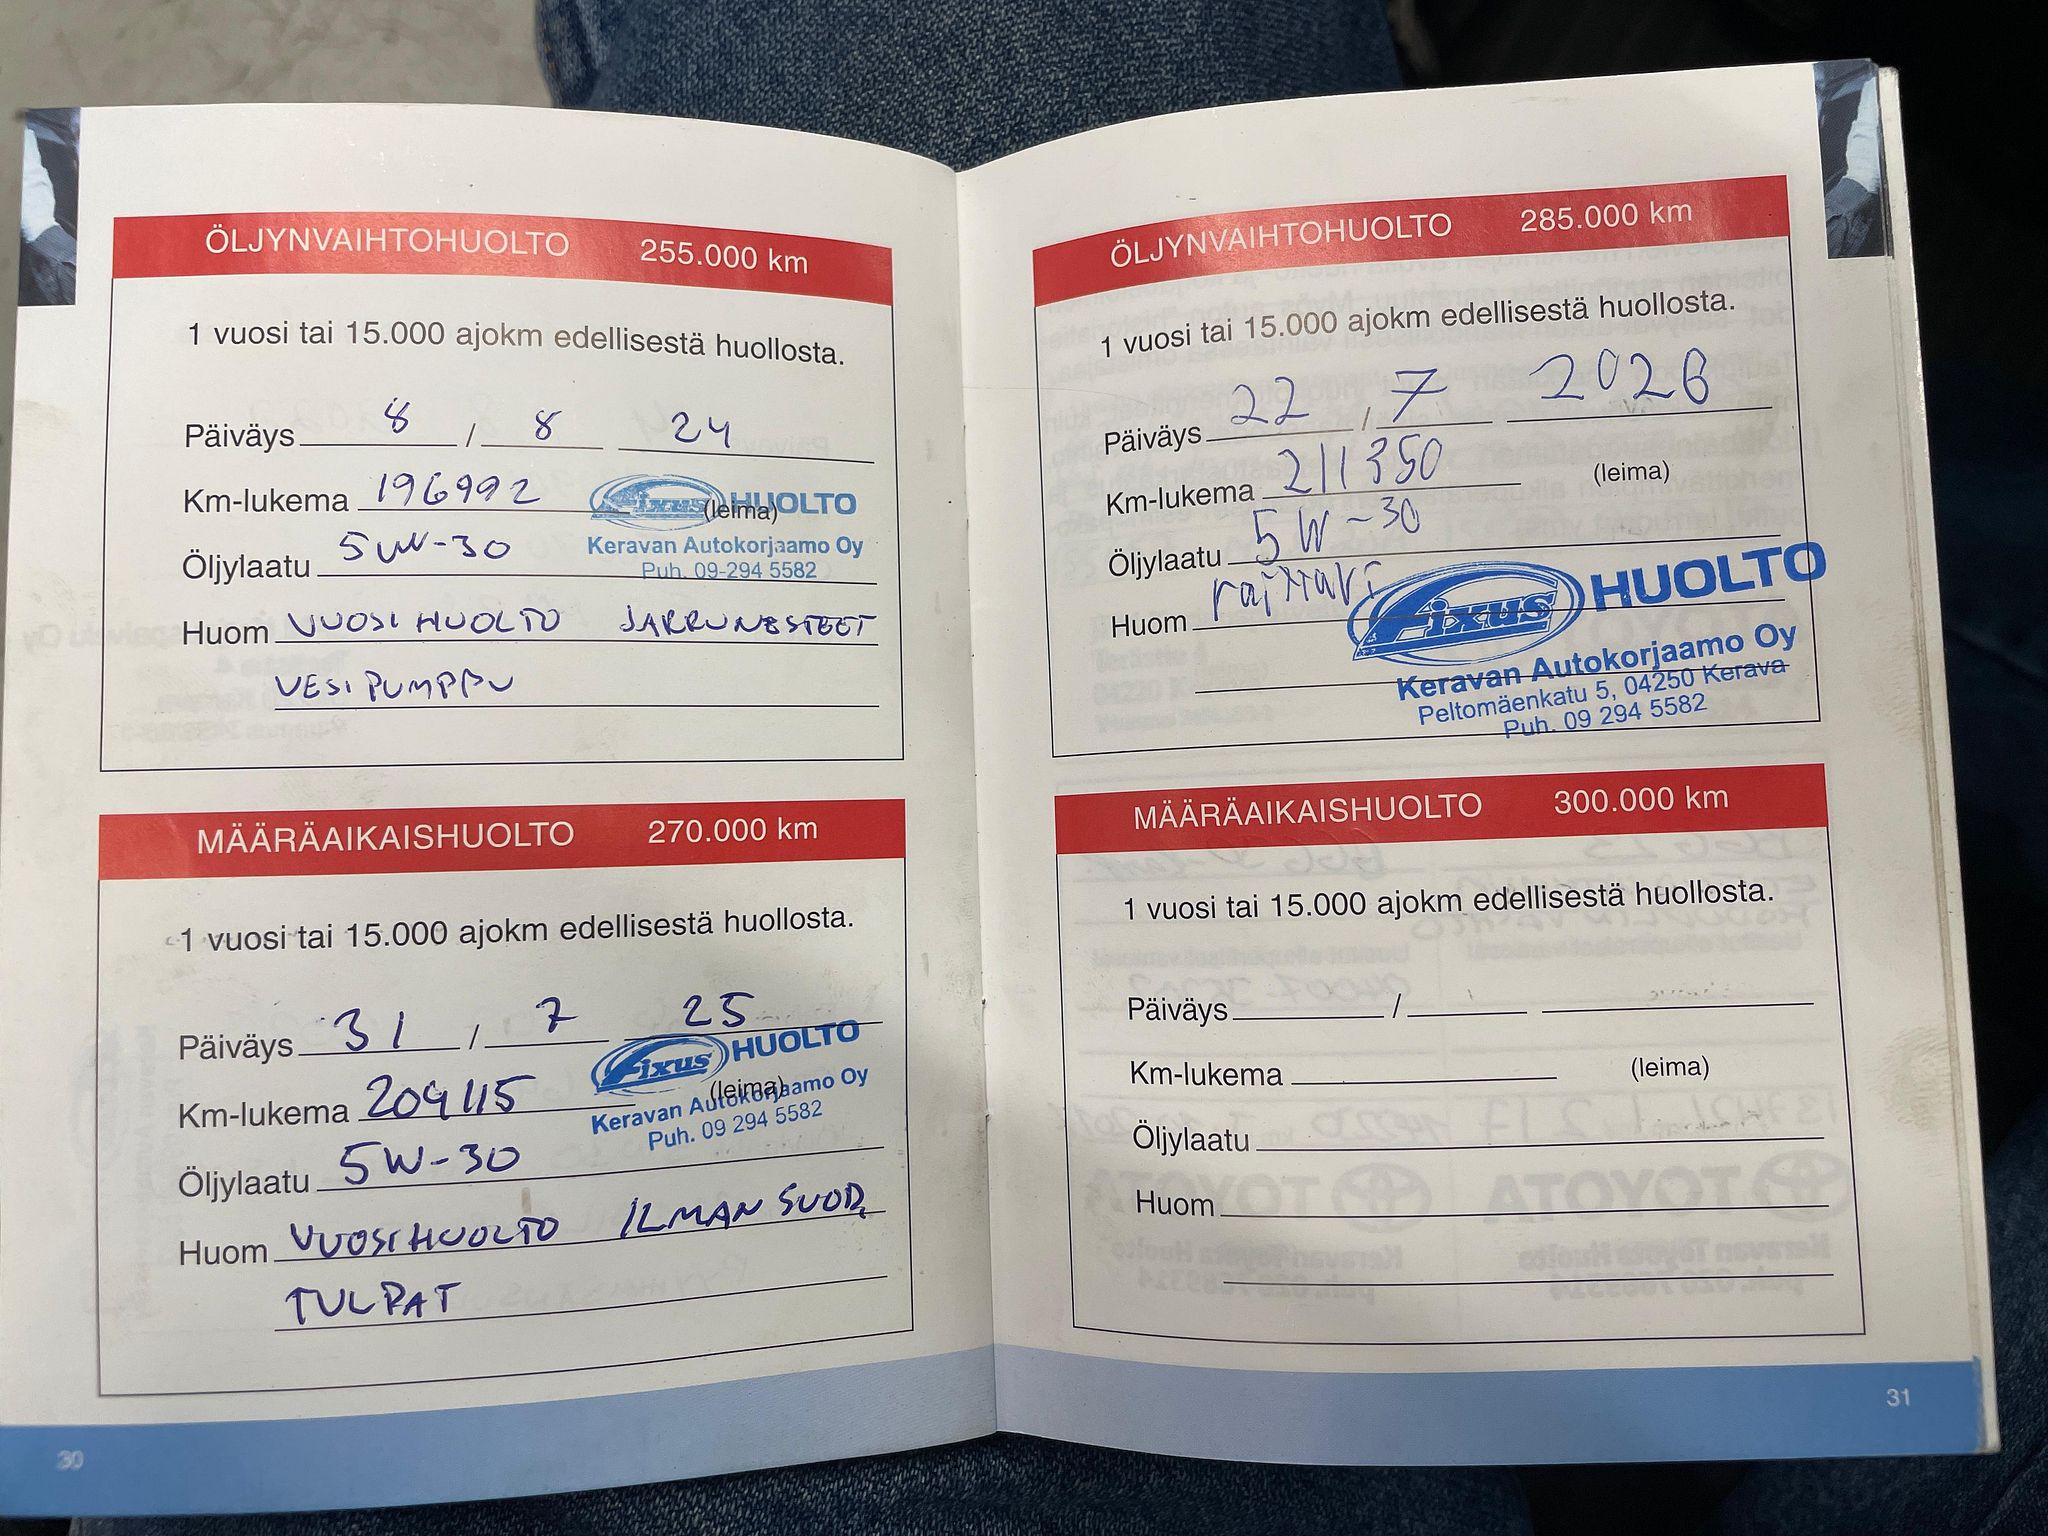 ÖLJYNVAIHTOHUOLTO 255.000 km
1 vuosi tai 15.000 ajokm edellisestä huollosta.
Päiväys 8 / 8 24
Km-lukema 196992 (leima)
Fixus HUOLTO
Keravan Autokorjaamo Oy
Puh. 09-294 5582
Öljylaatu 5W-30
Huom VUOSIHUOLTO JARRUNESTEET
VESIPUMPPU
MÄÄRÄAIKAISHUOLTO 270.000 km
1 vuosi tai 15.000 ajokm edellisestä huollosta.
Päiväys 31 / 7 25
Fixus HUOLTO
Km-lukema 209115 (leima)
Keravan Autokorjaamo Oy
Puh. 09 294 5582
Öljylaatu 5W-30
Huom VUOSIHUOLTO ILMAN SUOD.
TULPAT
30
ÖLJYNVAIHTOHUOLTO 285.000 km
1 vuosi tai 15.000 ajokm edellisestä huollosta.
Päiväys 22 / 7 2026
Km-lukema 211350 (leima)
Öljylaatu 5W-30
Huom
Fixus HUOLTO
Keravan Autokorjaamo Oy
Peltomäenkatu 5, 04250 Kerava
Puh. 09 294 5582
MÄÄRÄAIKAISHUOLTO 300.000 km
1 vuosi tai 15.000 ajokm edellisestä huollosta.
Päiväys /
Km-lukema (leima)
Öljylaatu
Huom
31